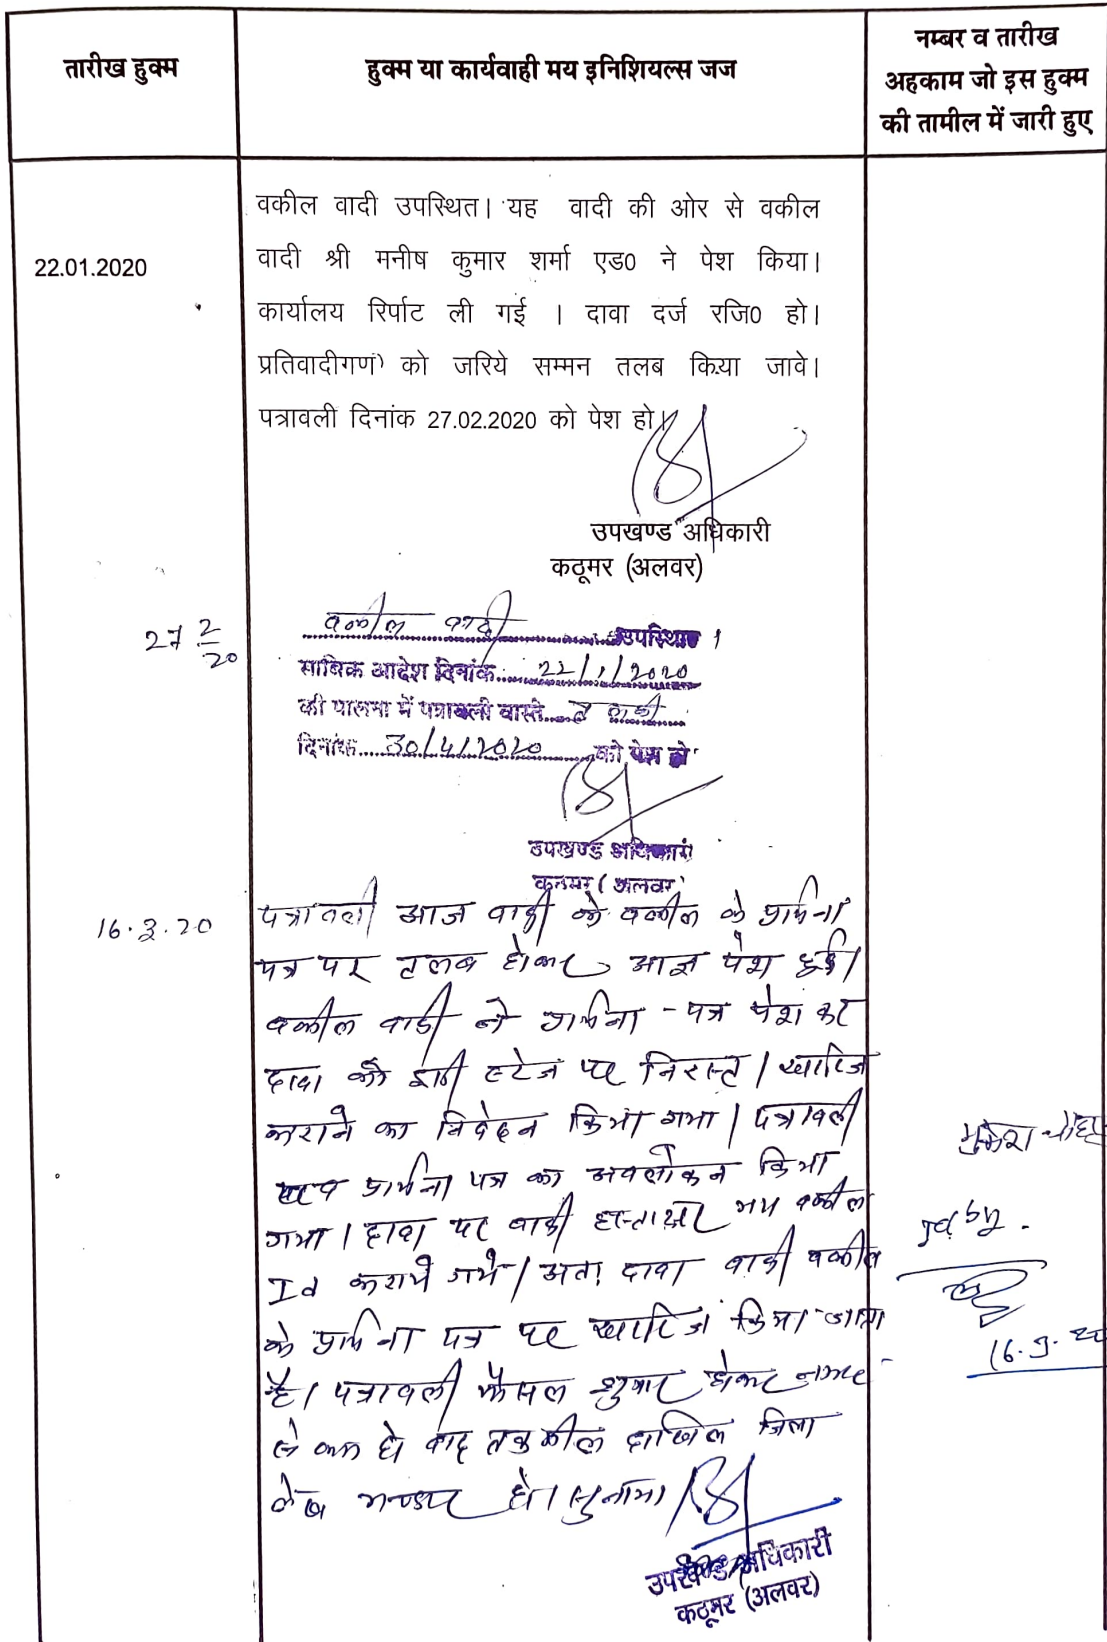 तारीख हुक्म
हुक्म या कार्यवाही मय इनिशियल्स जज
नम्बर व तारीख
अहकाम जो इस हुक्म
की तामील में जारी हुए
22.01.2020
वकील वादी उपस्थित। यह वादी की ओर से वकील
वादी श्री मनीष कुमार शर्मा एड0 ने पेश किया।
कार्यालय रिर्पाट ली गई । दावा दर्ज रजि0 हो।
प्रतिवादीगण को जरिये सम्मन तलब किया जावे।
पत्रावली दिनांक 27.02.2020 को पेश हो।
उपखण्ड अधिकारी
कठूमर (अलवर)
27 2/20
वकील वादी उपस्थित।
साबिक आदेश दिनांक 22/1/2020
की पालना में पत्रावली वास्ते तलबी
दिनांक 30/4/2020 को पेश हो
उपखण्ड अधिकारी
कठूमर (अलवर)
16.3.20
पत्रावली आज वादी के वकील के प्रार्थना
पत्र पर तलब होकर आज पेश हुई।
वकील वादी ने प्रार्थना-पत्र पेश कर
दावा को इसी स्टेज पर निरस्त/खारिज
कराने का निवेदन किया गया। पत्रावली
व प्रार्थना पत्र का अवलोकन किया
गया। दावा पर वादी हस्ताक्षर मय वकील
Id कराये गये। अतः दावा वादी वकील
के प्रार्थना पत्र पर खारिज किया जाता
है। पत्रावली फैसल शुमार होकर नम्बर
से कम हो बाद तकमील दाखिल जिला
लेख भण्डार हो। सुनाया।
उपखण्ड अधिकारी
कठूमर (अलवर)
मुकेश
Id by
16.3.20